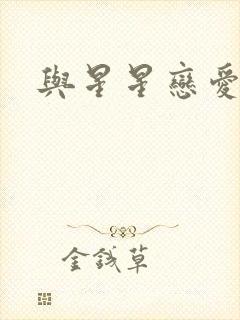 與星星戀愛
金錢草